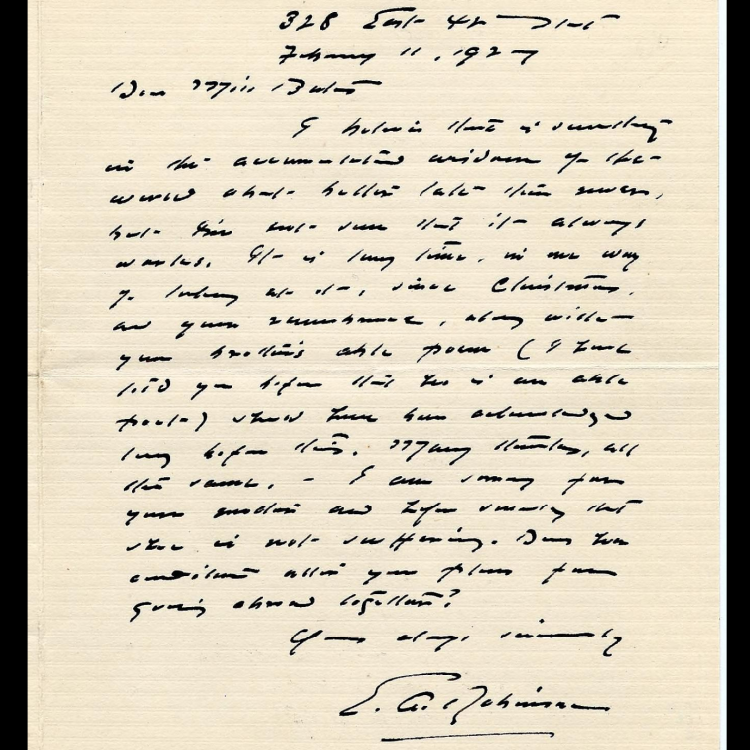 328 East 42 Street
February 11, 1927
Dear Miss Bates
I believe there is something
in the accumulated wisdom of the
world about better late than never,
but I'm not sure that it always
works. It is long time, in one way
of looking at it, since Christmas,
and your remembrance, along with
your brother's able poem (I have
told you before that he is an able
poet) should have been acknowledged
long before this. Many thanks, all
the same. – I am sorry for
your mother and hope sincerely that
she is not suffering. Does her
condition alter your plans for
going abroad together?
Yours always sincerely
E. A. Robinson